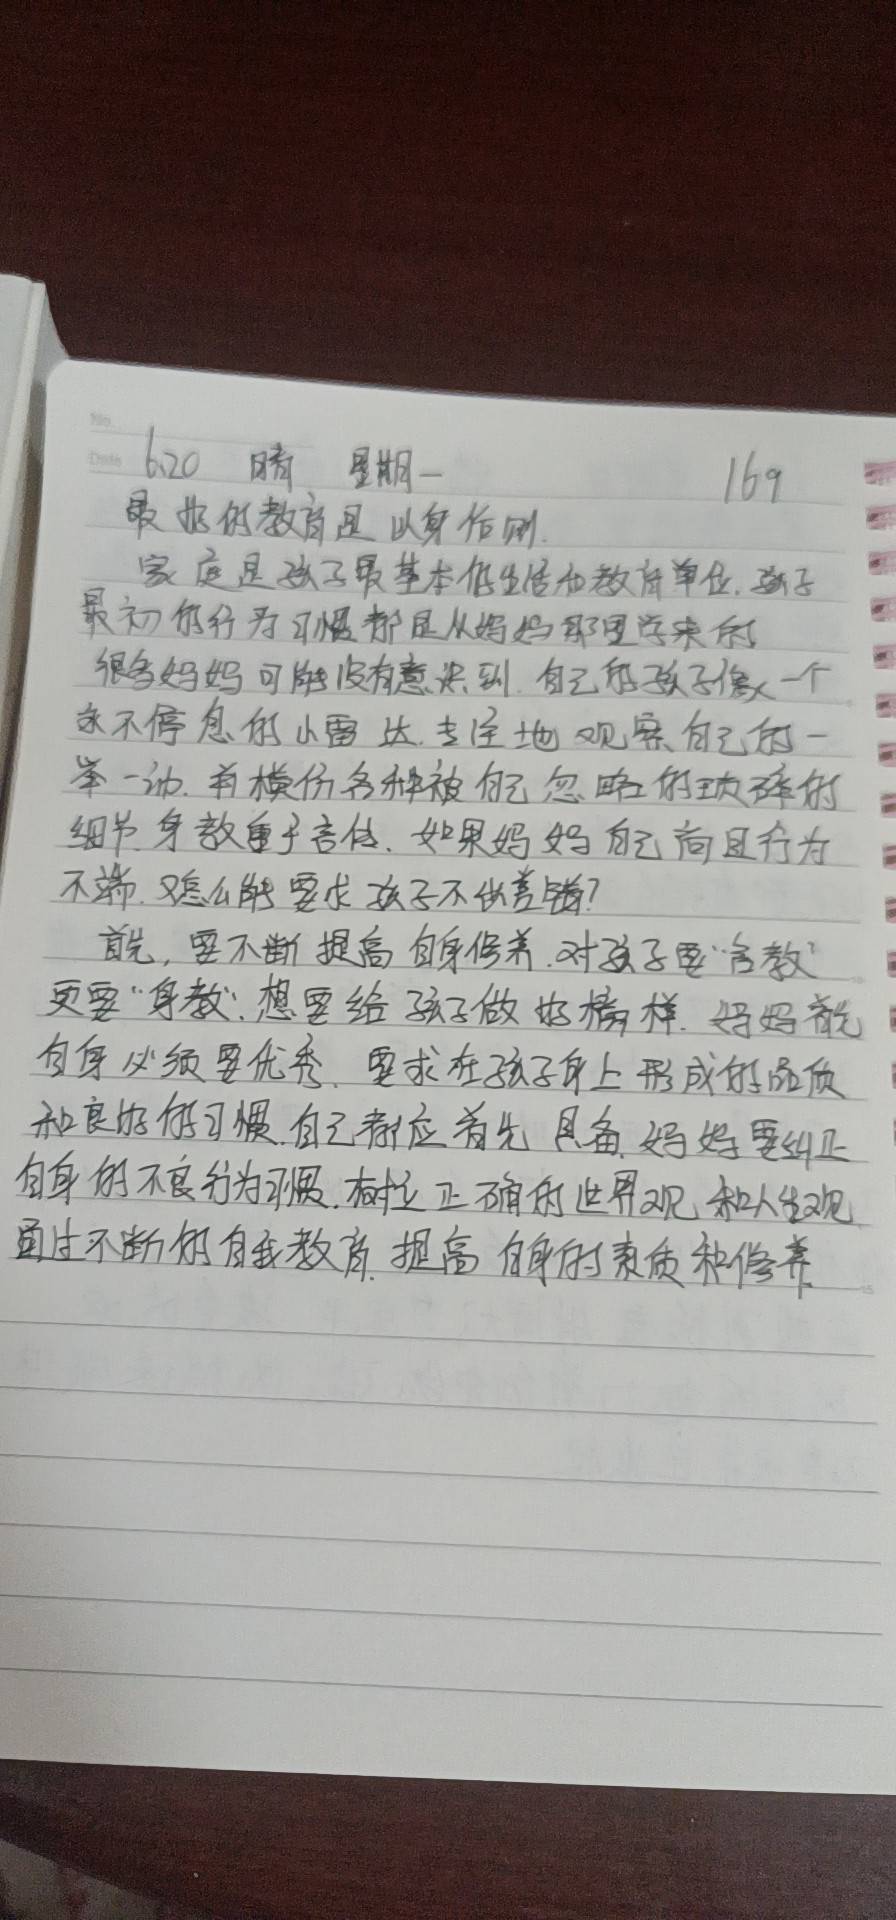 No.
Date 6.20 晴 星期一 169
最好的教育是以身作则.
家庭是孩子最基本的生活和教育单位.孩子
最初的行为习惯都是从妈妈那里学来的
很多妈妈可能没有意识到.自己的孩子像一个
永不停息的小雷达.专注地观察自己的一
举一动.并模仿各种被自己忽略的琐碎的
细节.身教重于言传.如果妈妈自己尚且行为
不端.又怎么能要求孩子不出差错?
首先,要不断提高自身修养.对孩子要"言教"
更要"身教".想要给孩子做好榜样.妈妈首先
自身必须要优秀.要求在孩子身上形成的品质
和良好的习惯.自己都应首先具备.妈妈要纠正
自身的不良行为习惯.树立正确的世界观和人生观
通过不断的自我教育.提高自身的素质和修养